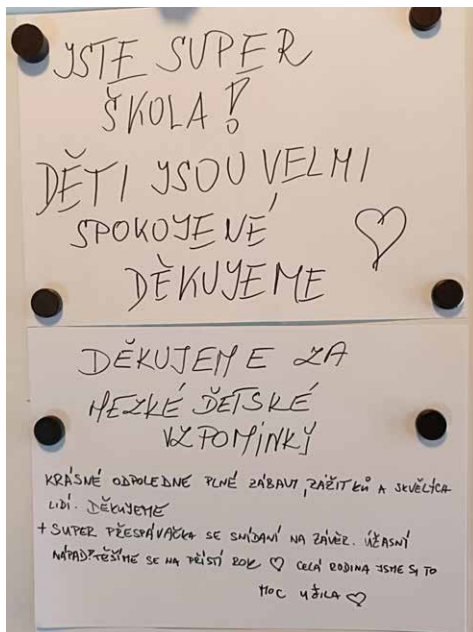 JSTE SUPER
ŠKOLA!
DĚTI JSOU VELMI
SPOKOJENÉ
DĚKUJEME
DĚKUJEME ZA
HEZKÉ DĚTSKÉ
VZPOMÍNKY
KRÁSNÉ ODPOLEDNE PLNÉ ZÁBAVY, ZÁŽITKŮ A SKVĚLÝCH
LIDÍ. DĚKUJEME
+ SUPER PŘESPÁVAČKA SE SNÍDANÍ NA ZÁVĚR. ÚŽASNÍ
NÁPAD TĚŠÍME SE NA PŘÍSTÍ ROK ♡ CELÁ RODINA JSME SI TO
MOC UŽILA ♡